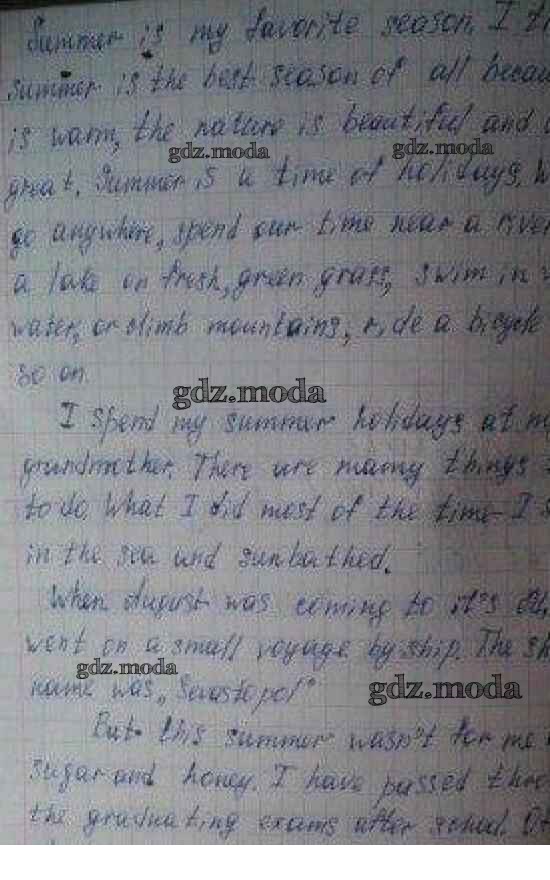 Summer is my favorite season. I
summer is the best season of all
is warm, the nature is beautiful and
gdz.moda
gdz.moda
great. Summer is a time of holidays.
go anywhere, spend our time near a
a lake on fresh, green grass, swim in
water, or climb mountains, ride a bicycle
so on.
gdz.moda
I spend my summer holidays at
grandmother. There are many things
to do. What I did most of the time - I
in the sea and sunbathed.
When August was coming to it's
went on a small voyage by ship. The
gdz.moda
name was „Sevastopol"
gdz.moda
But this summer wasn't for me
sugar and honey. I have passed
the graduating exams after school.